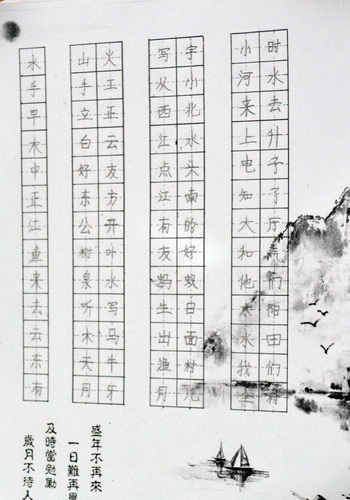 时水去升子了厅们阳田们
小河来上电知大和他水
字小北水头南的好蚁白面村儿
写从西江点江有友蚂生出渔月
火王正云友方开叶水写马牛牙
山手立白好东公树泉听木天月
水手早木中正江鱼来去云东有
盛年不再來
一日難再
及時當勉勵
歲月不待人